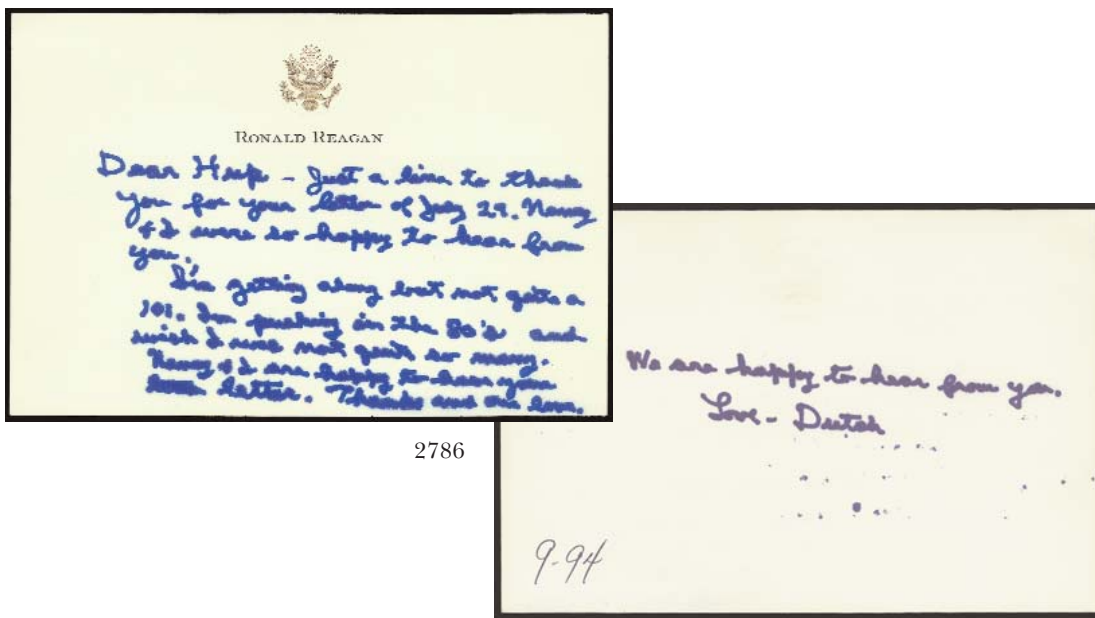 RONALD REAGAN
Dear Hup – Just a line to thank
you for your letter of July 29. Nancy
& I were so happy to hear from
you.
I'm getting along but not quite a
101. I'm pushing in the 80's and
wish I was not quite so many.
Nancy & I are happy to hear your
letter. Thanks and our love.
2786
We are happy to hear from you.
Love – Dutch
9-94